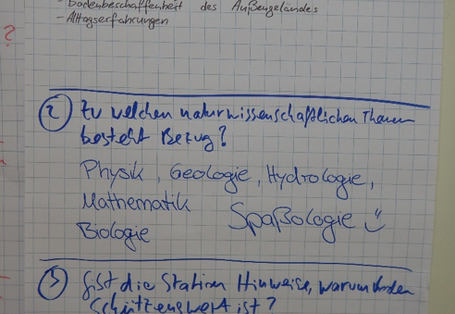 - Bodenbeschaffenheit des Außengeländes
- Alltagserfahrungen
?
② Zu welchen naturwissenschaftlichen Themen
besteht Bezug?
Physik, Geologie, Hydrologie,
Mathematik Spaßologie
Biologie
③ die Station Hinweise, warum
Schützenswert ist?